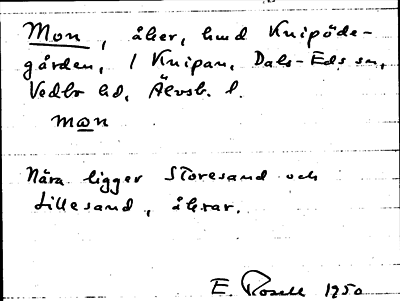 Mon, åker, hmd Knipöde-
gården, 1 Knipan, Dals-Eds sn,
Vedbo hd, Älvsb. l.
mɷn
Nära ligger Storesand och
Lillesand, åkrar.
E. Rosell 1950